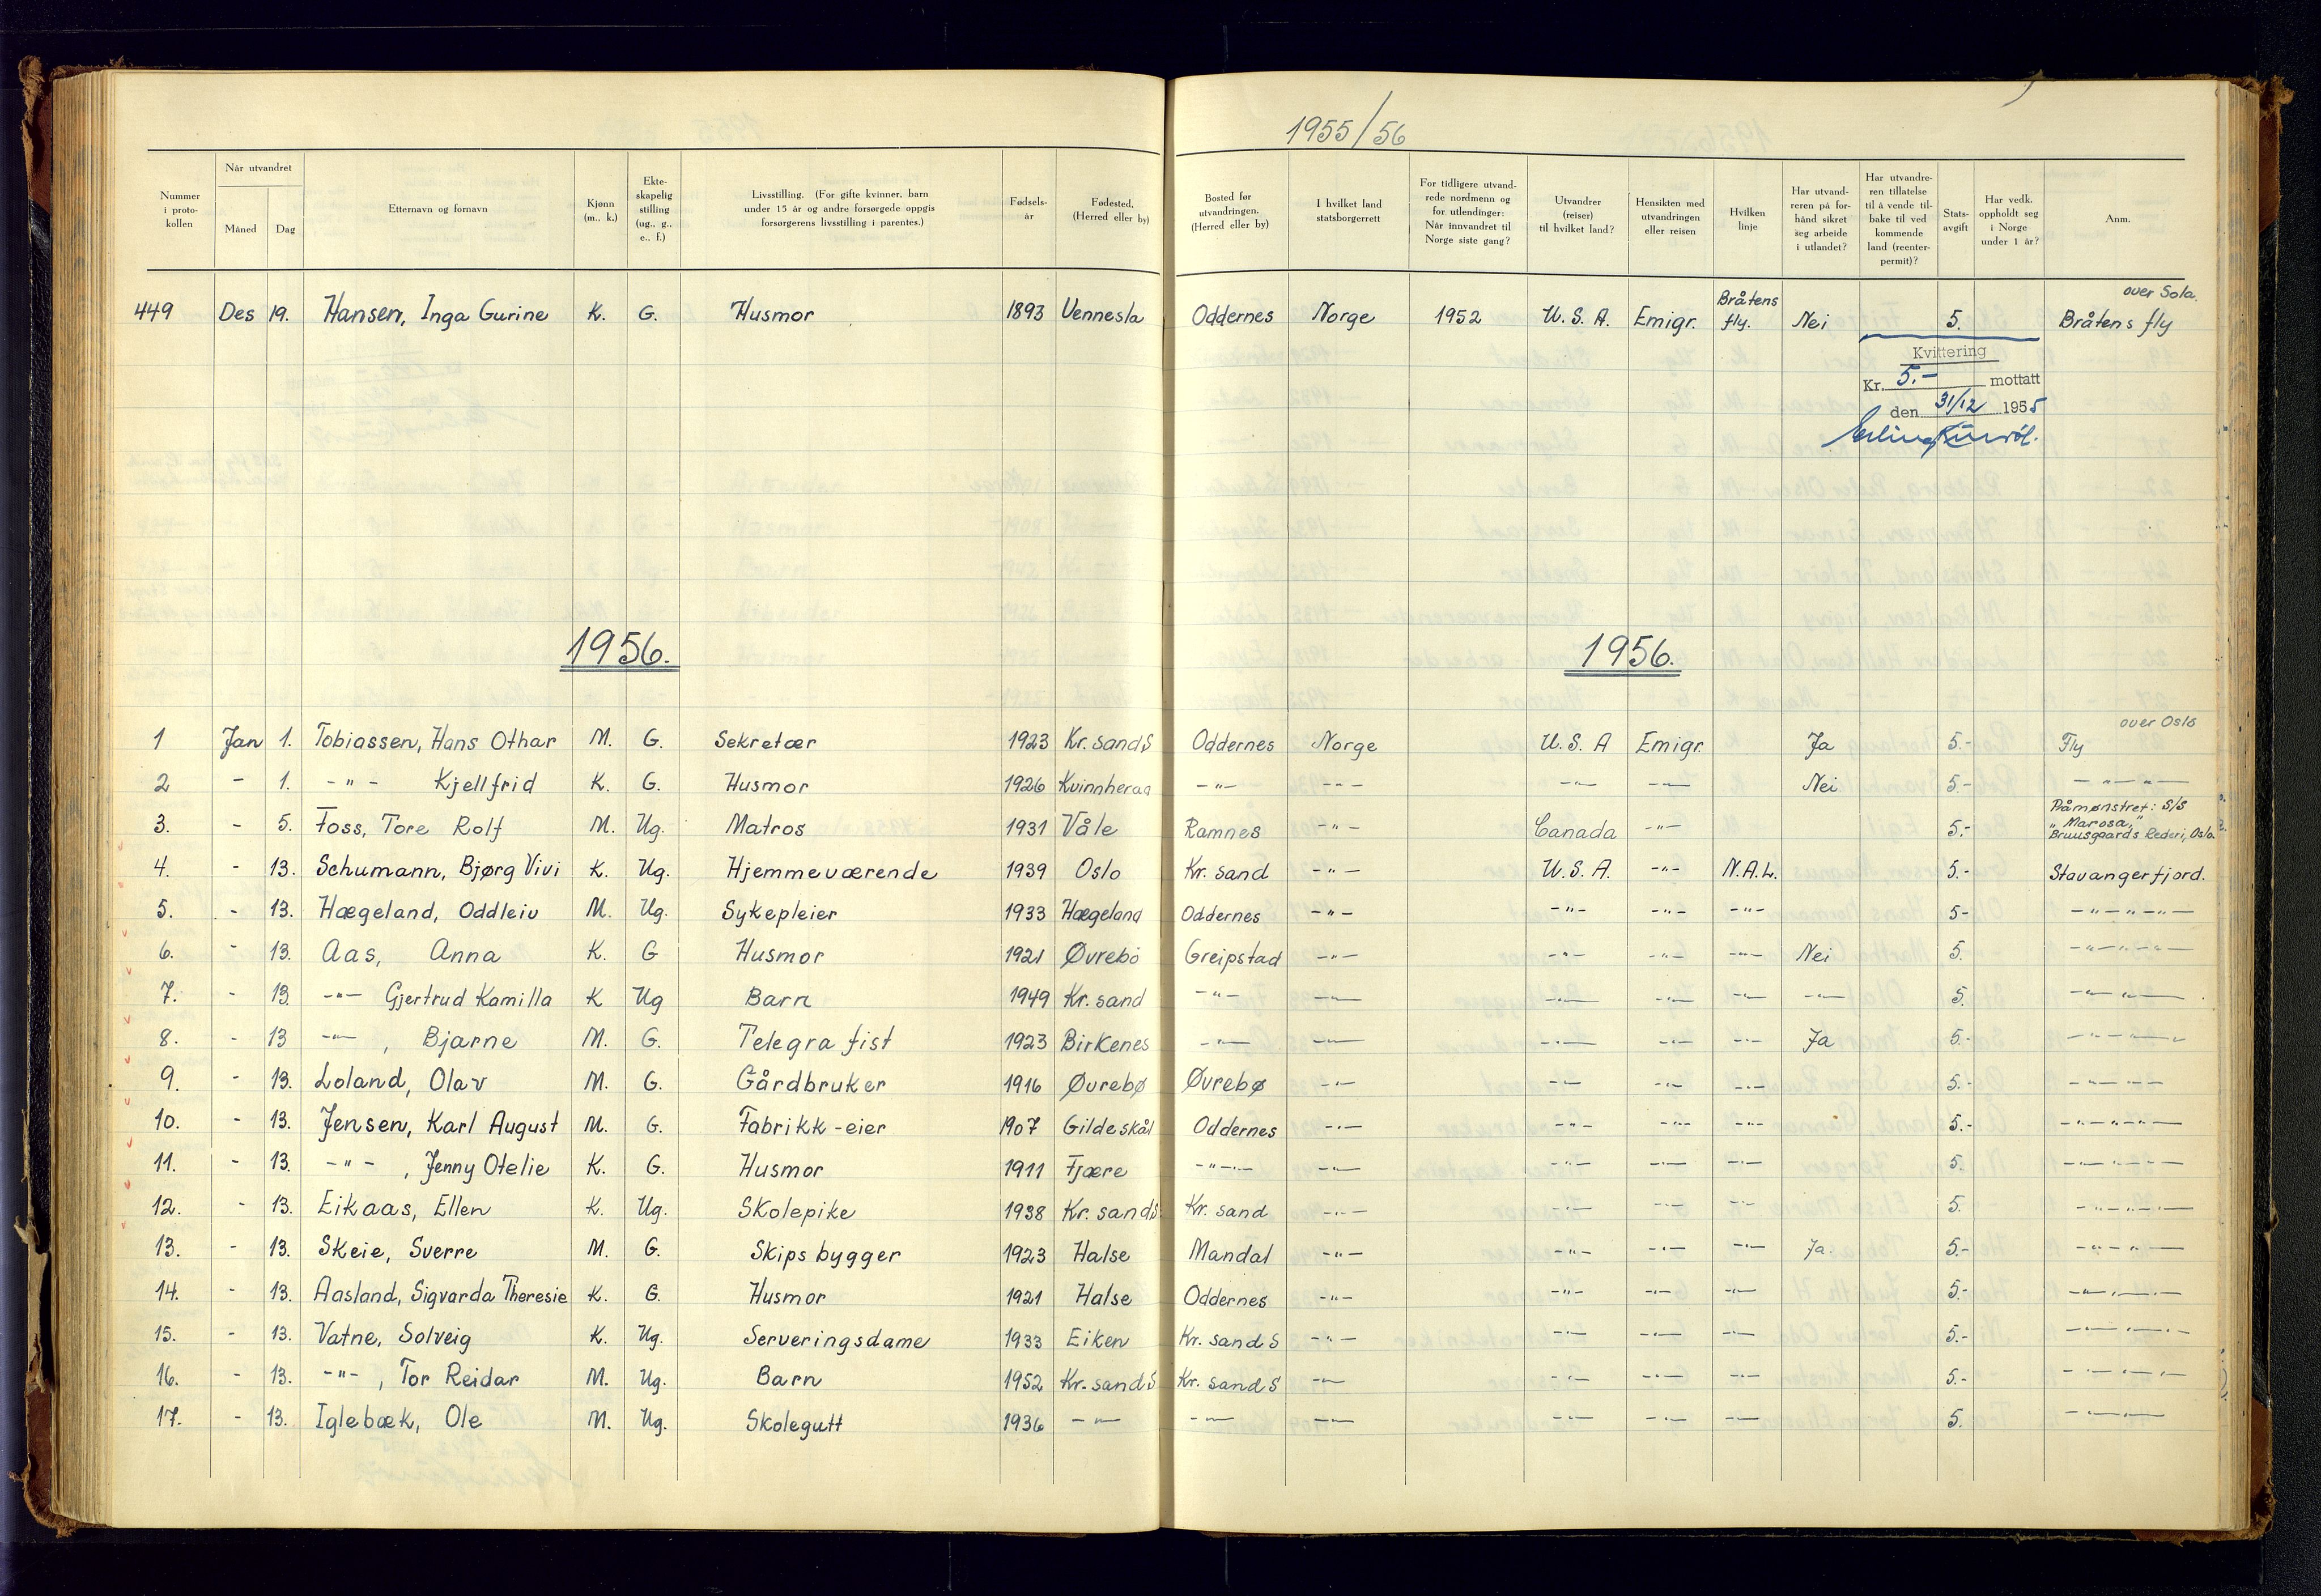 1955/56
Nummer i proto- kollen | Når utvandret Måned Dag | Etternavn og fornavn | Kjønn (m., k.) | Ekte- skapelig stilling (ug., g., e., f.) | Livsstilling. (For gifte kvinner, barn under 15 år og andre forsørgede oppgis forsørgerens livsstilling i parentes.) | Fødsels- år | Fødested. (Herred eller by) | Bosted før utvandringen. (Herred eller by) | I hvilket land statsborgerrett | For tidligere utvand- rede nordmenn og for utlendinger: Når innvandret til Norge siste gang? | Utvandrer (reiser) til hvilket land? | Hensikten med utvandringen eller reisen | Hvilken linje | Har utvand- reren på for- hånd sikret seg arbeide i utlandet? | Har utvandre- ren tillatelse til å vende til- bake til ved kommende land (reenter- permit)? | Stats- avgift | Har vedk. oppholdt seg i Norge under 1 år? | Anm.
449 Des 19. Hansen, Inga Gurine K. G. Husmor 1893 Vennesla Oddernes Norge 1952 U.S.A. Emigr. Bråtens fly. Nei 5. over Sola. Bråtens fly
Kvittering
Kr. 5.- mottatt
den 31/12 1955
1956. 1956.
1 Jan 1. Tobiassen, Hans Othar M. G. Sekretær 1923 Kr.sandS Oddernes Norge U.S.A Emigr. Ja 5.- over Oslo Fly
2 - 1. -"- Kjellfrid K. G. Husmor 1926 Kvinnherad -"- -"- -"- -"- Nei 5.- -"-"-
3. - 5. Foss, Tore Rolf M. Ug. Matros 1931 Våle Ramnes -"- Canada -"- 5.- Påmønstret: S/S "Marosa," Bruusgaards Rederi, Oslo.
4. - 13. Schumann, Bjørg Vivi K. Ug. Hjemmeværende 1939 Oslo Kr. sand -"- U.S.A. -"- N.A.L. 5.- Stavangerfjord.
5. - 13. Hægeland, Oddleiv M. Ug. Sykepleier 1933 Hægeland Oddernes -"- -"- -"- -"- 5- -"-"-"-
6. - 13. Aas, Anna K. G Husmor 1921 Øvrebö Greipstad -"- -"- -"- -"- Nei 5. -"-"-"-
7. - 13. -"- Gjertrud Kamilla K Ug Barn 1949 Kr. sand -"- -"- -"- -"- -"- -"- 5. -"-"-
8. - 13 -"-, Bjarne M. G. Telegrafist 1923 Birkenes -"- -"- -"- -"- -"- Ja 5.- -"-"-"-
9. - 13. Loland, Olav M. G. Gårdbruker 1916 Øvrebø Øvrebø -"- -"- -"- -"- 5.- -"-"-"-
10. - 13. Jensen, Karl August M. G. Fabrikk-eier 1907 Gildeskål Oddernes -"- -"- -"- -"- 5.- -"-"-"-
11. - 13. -"-, Jenny Otelie K. G. Husmor 1911 Fjære -"- -"- -"- -"- -"- 5. -"-"-"-
12. - 13. Eikaas, Ellen K. Ug. Skolepike 1938 Kr. sandS Kr. sand -"- -"- -"- -"- 5. -"-"-"-
13. - 13. Skeie, Sverre M. G. Skipsbygger 1923 Halse Mandal -"- -"- -"- -"- Ja. 5.- -"-"-
14. - 13. Aasland, Sigvarda Theresie K. G. Husmor 1921 Halse Oddernes -"- -"- -"- -"- 5.- -"-"-"-
15. - 13. Vatne, Solveig K. Ug. Serveringsdame 1933 Eiken Kr. sand S -"- -"- -"- -"- 5.- -"-"-"-
16. - 13. -"-, Tor Reidar M. Ug. Barn 1952 Kr. sandS Kr. sand S -"- -"- -"- -"- 5.- -"-"-"-
17. - 13. Iglebæk, Ole M. Ug. Skolegutt 1936 -"- -"- -"- -"- -"- -"- 5. -"-"-